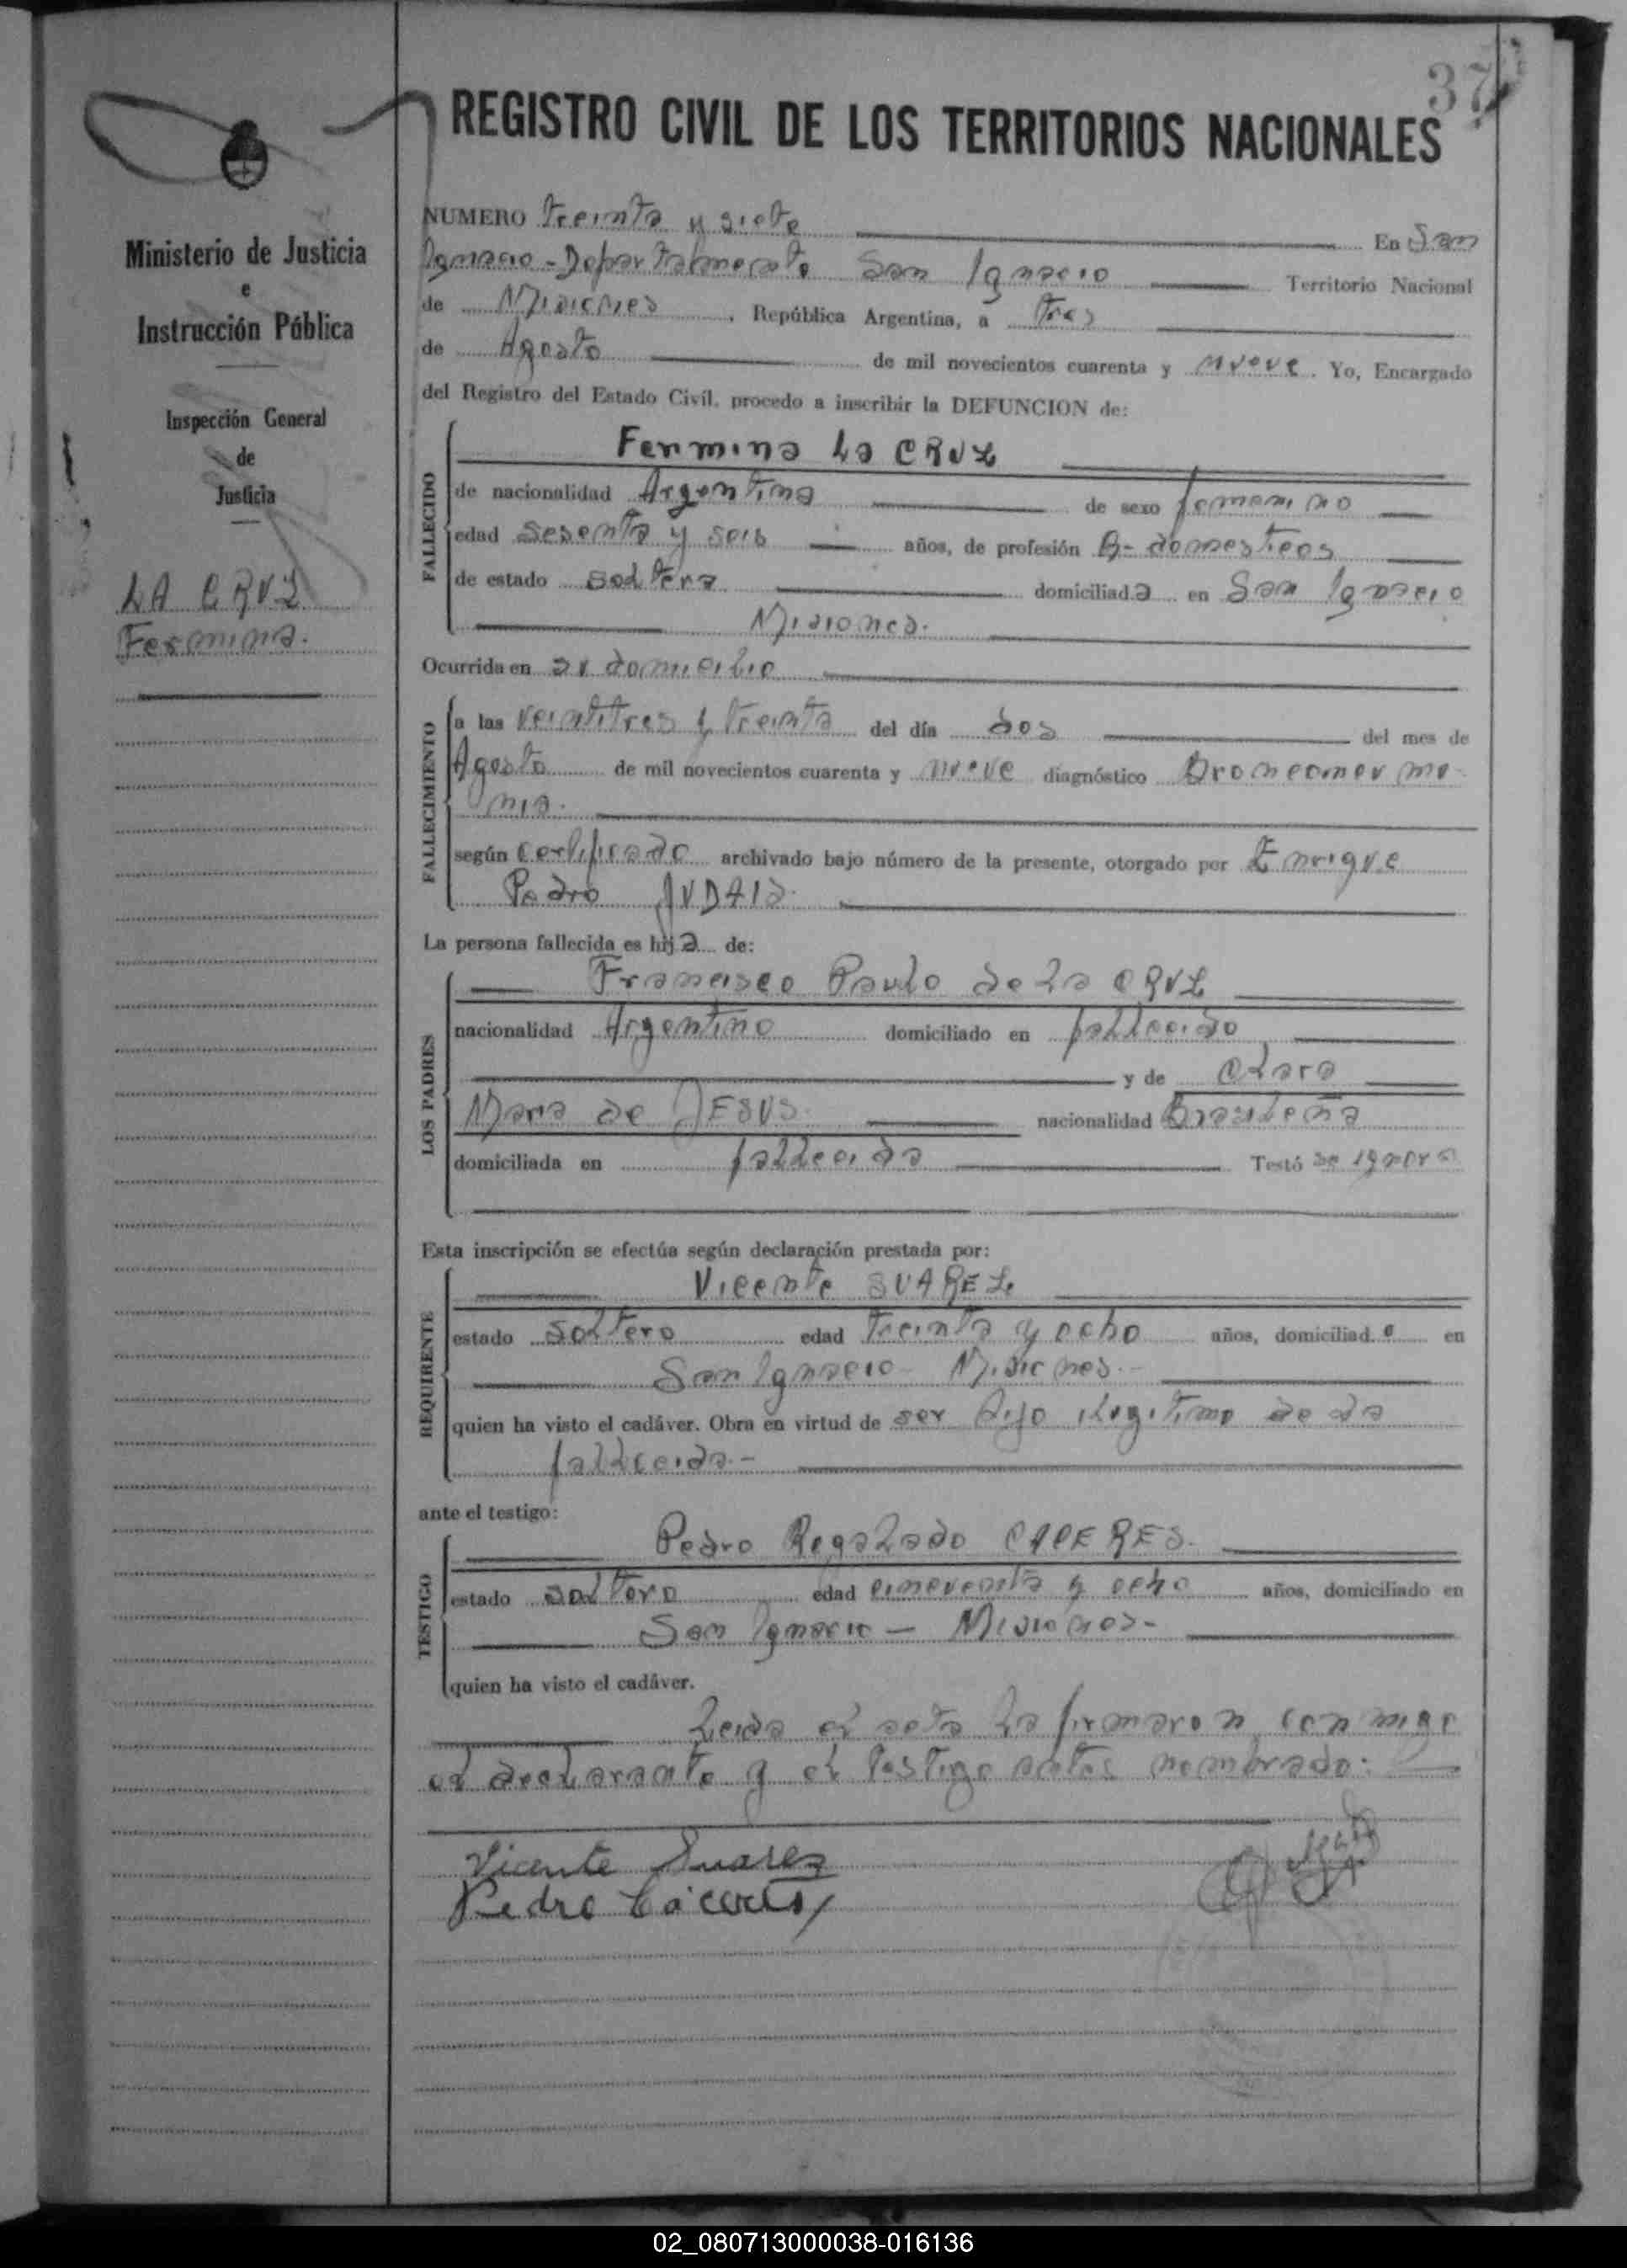 37
REGISTRO CIVIL DE LOS TERRITORIOS NACIONALES
Ministerio de Justicia
e
Instrucción Pública
Inspección General
de
Justicia
LA CRUZ
Fermina.
NUMERO Treinta y siete En San
Ignacio - Departamento San Ignacio Territorio Nacional
de Misiones, República Argentina, a Tres
de Agosto de mil novecientos cuarenta y nueve. Yo, Encargado
del Registro del Estado Civil, procedo a inscribir la DEFUNCION de:
FALLECIDO
Fermina La CRUZ
de nacionalidad Argentina de sexo femenino
edad sesenta y seis años, de profesión Q- domesticos
de estado soltera domiciliada en San Ignacio
Misiones.
Ocurrida en su domicilio
FALLECIMIENTO
a las veintitres y treinta del día dos del mes de
Agosto de mil novecientos cuarenta y nueve diagnóstico Bronconeumo-
nia.
según certificado archivado bajo número de la presente, otorgado por Enrique
Pedro JUDAIS.
La persona fallecida es hija de:
LOS PADRES
Francisco Paulo de La CRUZ
nacionalidad Argentino domiciliado en fallecido
y de Clara
Maria de JESUS. nacionalidad Brasileña
domiciliada en fallecida Testó se ignora
Esta inscripción se efectúa según declaración prestada por:
REQUIRENTE
Vicente SUAREZ.
estado soltero edad treinta y ocho años, domiciliado en
San Ignacio - Misiones.-
quien ha visto el cadáver. Obra en virtud de ser hijo ilegitimo de la
fallecida.-
ante el testigo:
TESTIGO
Pedro Regalado CACERES.
estado soltero edad cincuenta y ocho años, domiciliado en
San Ignacio - Misiones-
quien ha visto el cadáver.
Leida el acta la firmaron conmigo
el declarante y el testigo antes nombrado:
Vicente Suarez
Pedro Cáceres
02_080713000038-016136